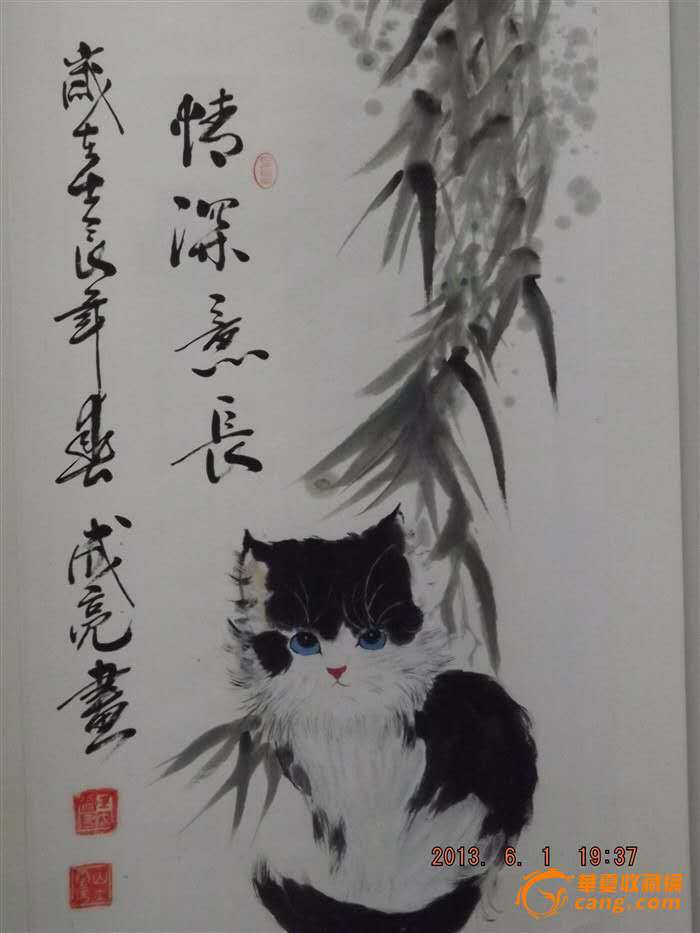 情深意長
歲在壬辰年春 成亮畫
2013. 6. 1 19:37
華夏收藏網
cang.com